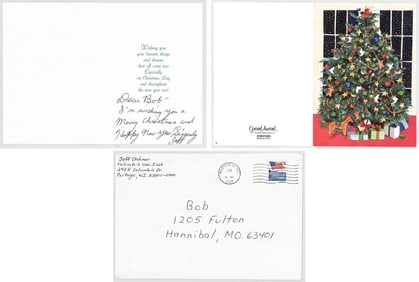 Wishing you
your favorite things
and dreams
that all come true
Especially
on Christmas Day
and throughout
the new year too!
Dear Bob-
I'm wishing you a
Merry Christmas and
Happy New Year. Sincerely
Jeff
Jeff Dahmer
Columbia Corr. Inst.
Portage, WI.
Bob
1205 Fulton
Hannibal, MO. 63401